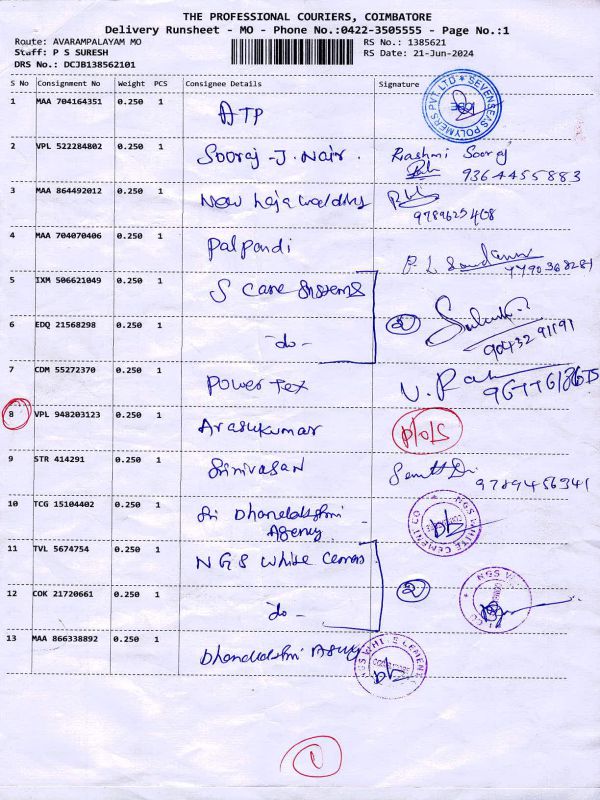 THE PROFESSIONAL COURIERS, COIMBATORE
Delivery Runsheet - MO - Phone No.:0422-3505555 - Page No.:1
Route: AVARAMPALAYAM MO
Staff: P S SURESH
DRS No.: DCJB138562101
RS No.: 1385621
RS Date: 21-Jun-2024
S No Consignment No Weight PCS Consignee Details Signature
1 MAA 704164351 0.250 1 ATP SEVENSEAS POLYMERS PVT. LTD
2 VPL 522284802 0.250 1 Sooraj-J. Nair. Rashmi Sooraj
9364455883
3 MAA 864492012 0.250 1 New
9789625408
4 MAA 704070406 0.250 1 Palpandi
7790368281
5 IXM 506621049 0.250 1 S Care Systems
6 EDQ 21568298 0.250 1 -do- 2
9043291191
7 CDM 55272370 0.250 1 Power Tex
8 VPL 948203123 0.250 1 Arasukumar P/O/S
9 STR 414291 0.250 1 Srinivasan
9789456341
10 TCG 15104402 0.250 1 Sri Dhanalakshmi
Agency NGS WHITE CEMENT CO
11 TVL 5674754 0.250 1 NGS White Cemas
12 COK 21720661 0.250 1 -do- 2
13 MAA 866338892 0.250 1 Dhanalakshmi Agency
1